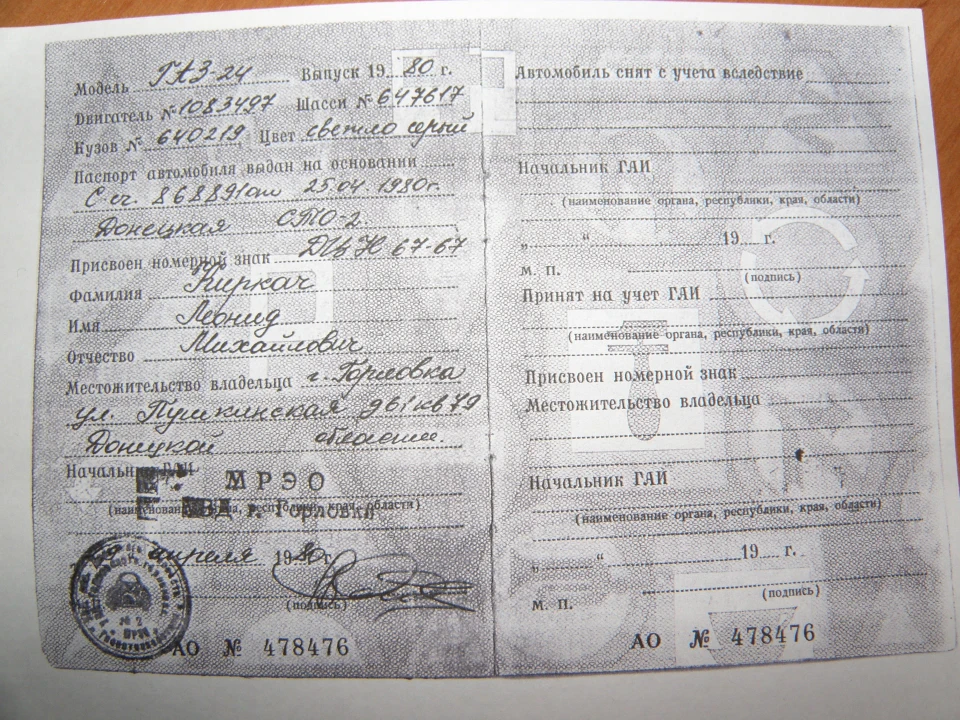 Модель ГАЗ-24 Выпуск 1980 г.
Двигатель № 1083497 Шасси № 647617
Кузов № 640219, Цвет светло серый
Паспорт автомобиля выдан на основании
С-сч. 868891 25.04.1980г.
Донецкая СТО-2.
Присвоен номерной знак ДЦН 67-67
Фамилия Киркач
Имя Леонид
Отчество Михайлович
Местожительство владельца г. Горловка
ул. Пушкинская 961кв79
Донецкой области.
Начальник ГАИ МРЭО
(наименование органа, республики, края, области)
г. Горловки
апреля 1980г.
(подпись)
АО № 478476
Автомобиль снят с учета вследствие
Начальник ГАИ
(наименование органа, республики, края, области)
„ “ 19 г.
М. П.
(подпись)
Принят на учет ГАИ
(наименование органа, республики, края, области)
Присвоен номерной знак
Местожительство владельца
Начальник ГАИ
(наименование органа, республики, края, области)
„ “ 19 г.
М. П.
(подпись)
АО № 478476